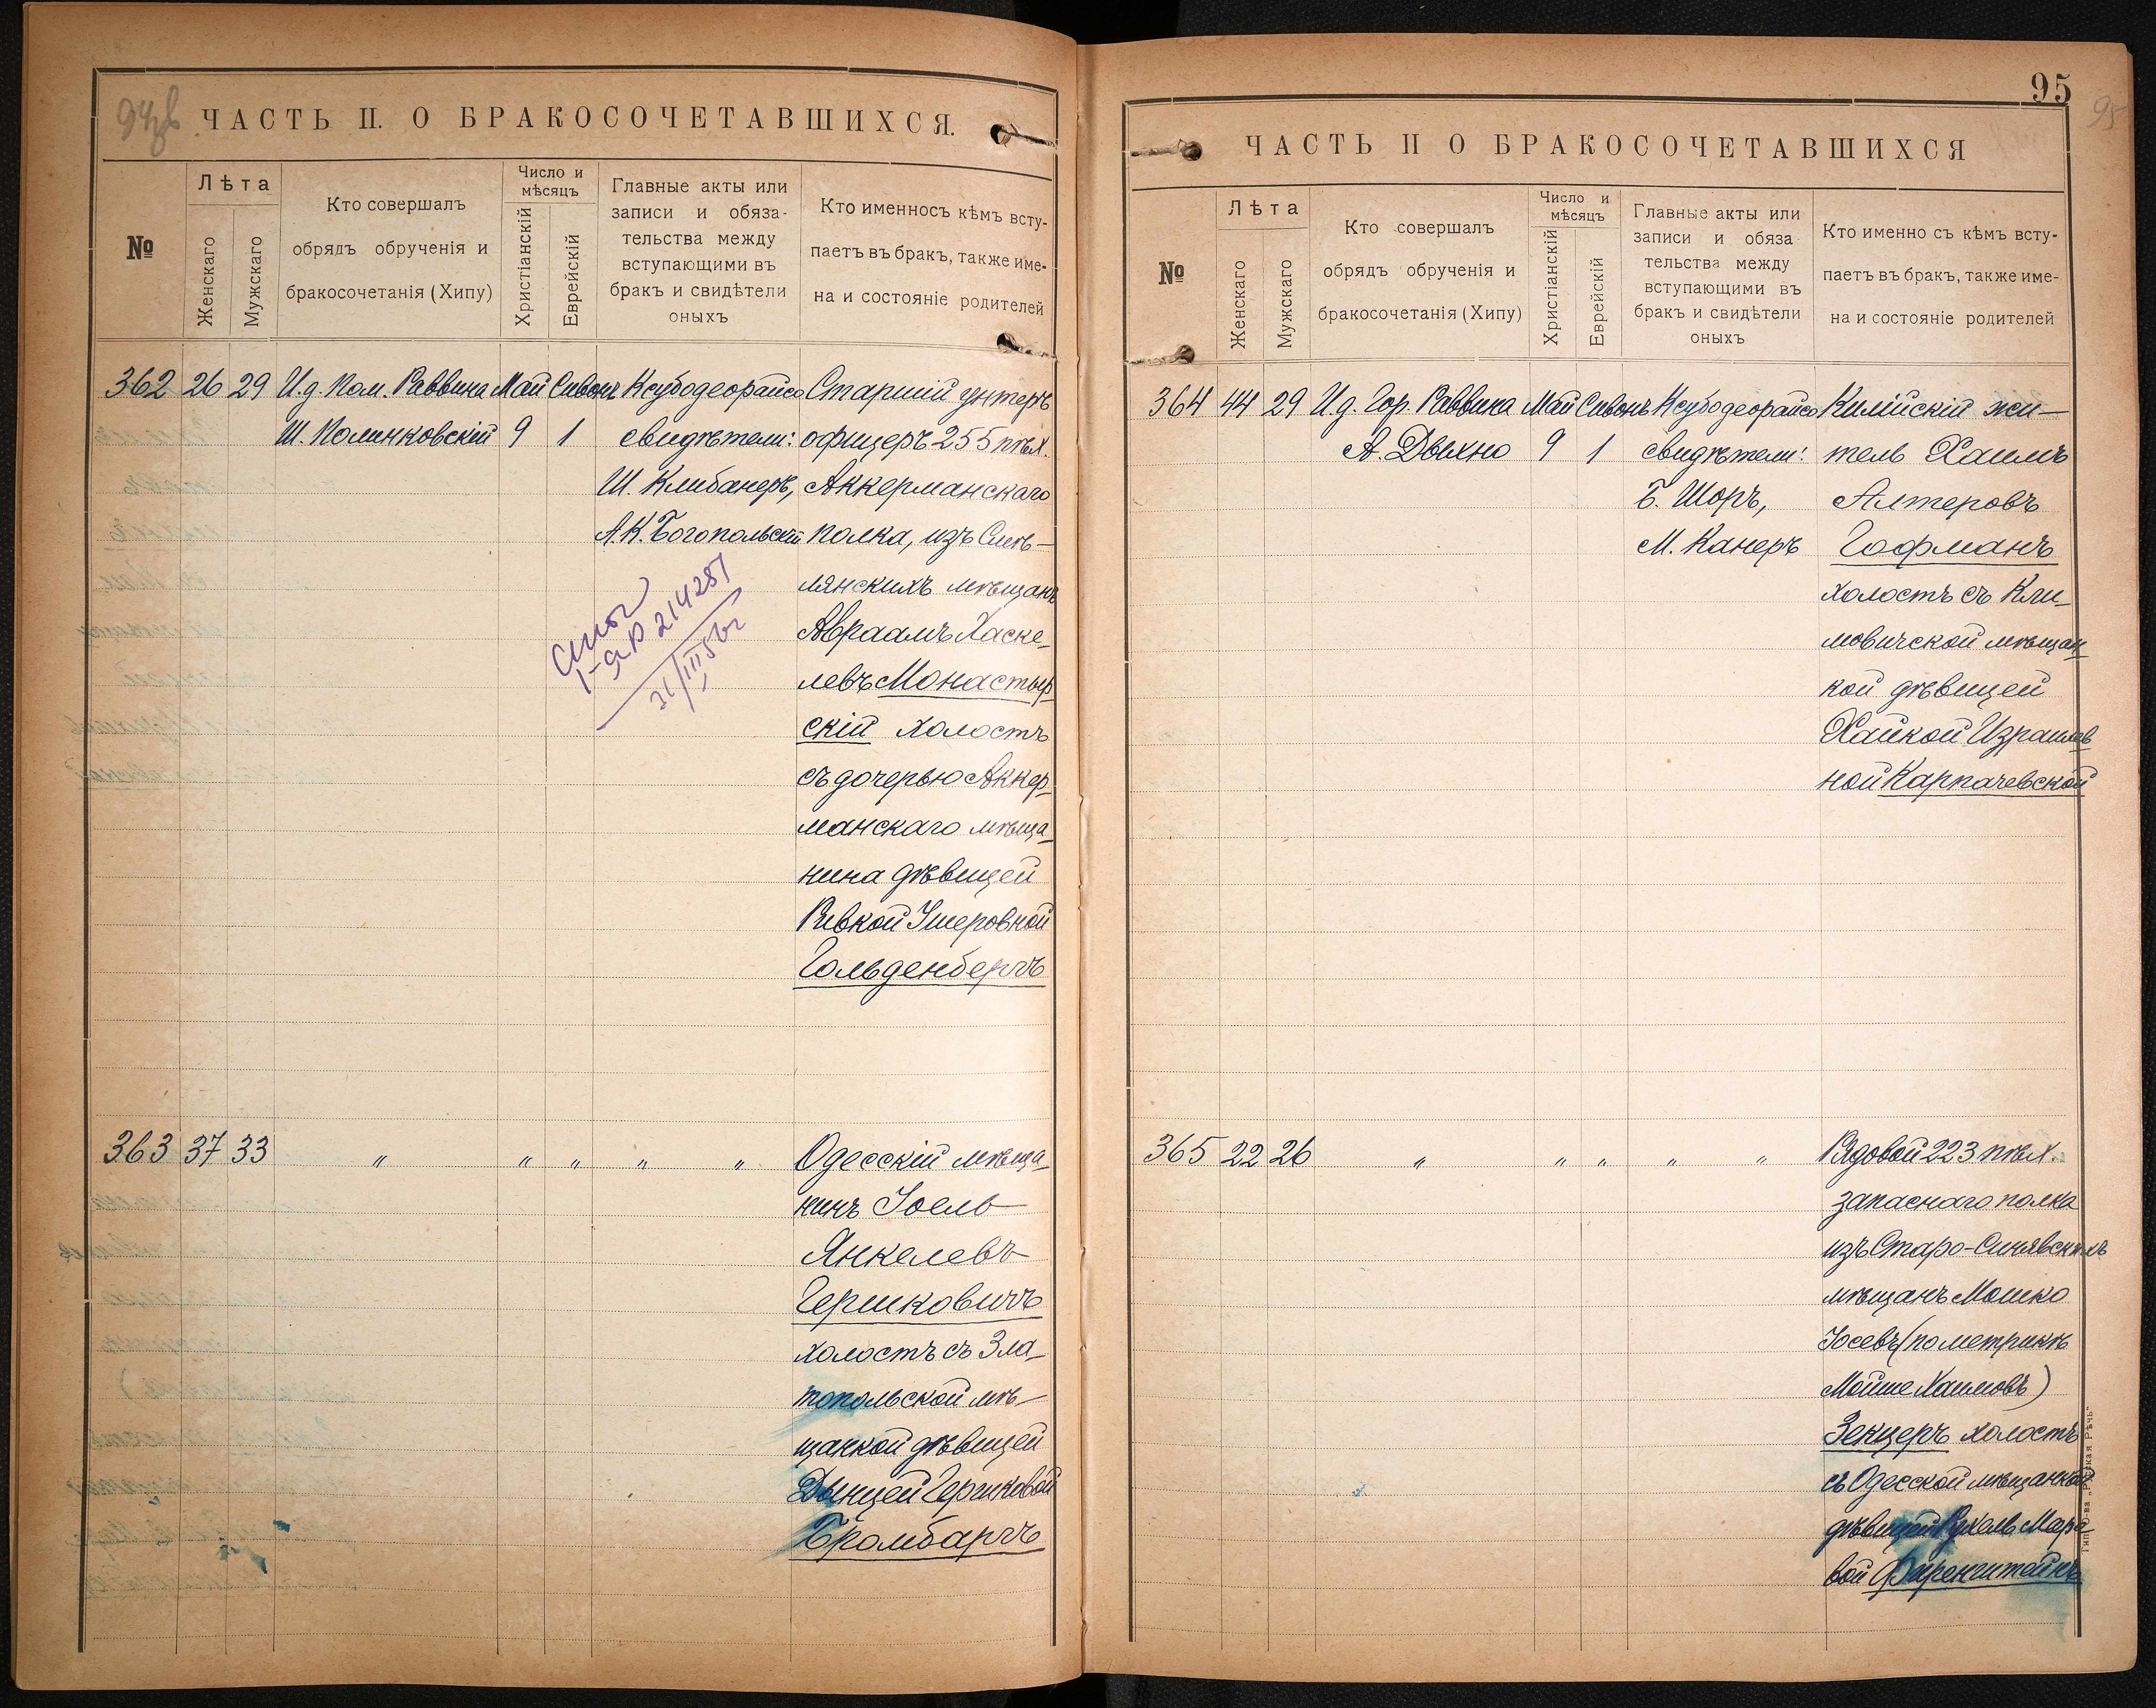 94об
ЧАСТЬ II. О БРАКОСОЧЕТАВШИХСЯ.
№
Лѣта
Женскаго
Мужскаго
Кто совершалъ
обрядъ обрученія и
бракосочетанія (Хипу)
Число и
мѣсяцъ
Христіанскій
Еврейскій
Главные акты или
записи и обяза-
тельства между
вступающими въ
бракъ и свидѣтели
оныхъ
Кто именносъ кѣмъ всту-
паетъ въ бракъ, также име-
на и состояніе родителей
362 26 29 И.д. Пом. Раввина Май Сивонъ Ксубодеорайсо Старшій унтеръ
Ш. Полинковскій 9 1 свидѣтели: офицеръ 255 пѣх.
Ш. Клибанеръ, Аккерманскаго
А.К. Богопольскій полка, изъ Смѣ-
лянскихъ мѣщанъ
Авраамъ Хаске-
левъ Монастыр
скій холостъ
съ дочерью Аккер-
манскаго мѣща-
нина дѣвицей
Ривкой Ушеровной
Гольденбергъ
214281
31/III
363 37 33 " " " " " Одесскій мѣща-
нинъ Іоель
Янкелевъ
Гершковичъ
холостъ съ Зла-
топольской мѣ-
щанкой дѣвицей
Дынцей Гершковой
Бромбаргъ
95
95
ЧАСТЬ II О БРАКОСОЧЕТАВШИХСЯ
№
Лѣта
Женскаго
Мужскаго
Кто совершалъ
обрядъ обрученія и
бракосочетанія (Хипу)
Число и
мѣсяцъ
Христіанскій
Еврейскій
Главные акты или
записи и обяза
тельства между
вступающими въ
бракъ и свидѣтели
оныхъ
Кто именно съ кѣмъ всту-
паетъ въ бракъ, также име-
на и состояніе родителей
364 44 29 И д. Гор. Раввина Май Сивонъ Ксубодеорайсо Килійскій жи-
А. Дыхно 9 1 свидѣтели: тель Хаимъ
Б. Шоръ, Алтеровъ
М. Канеръ Гофманъ
холостъ съ Кли-
мовичской мѣщан
кой дѣвицей
Хайкой Израилев
ной Карпачевской
365 22 26 " " " " " Рядовой 223 пѣх.
запаснаго полка
изъ Старо-Синявскихъ
мѣщанъ Мошко
Іосевъ (по метрикѣ
Мойше Хаимовъ)
Зекцеръ холостъ
съ Одесской мѣщанкой
дѣвицей Рухель
вой Фаренштейнъ